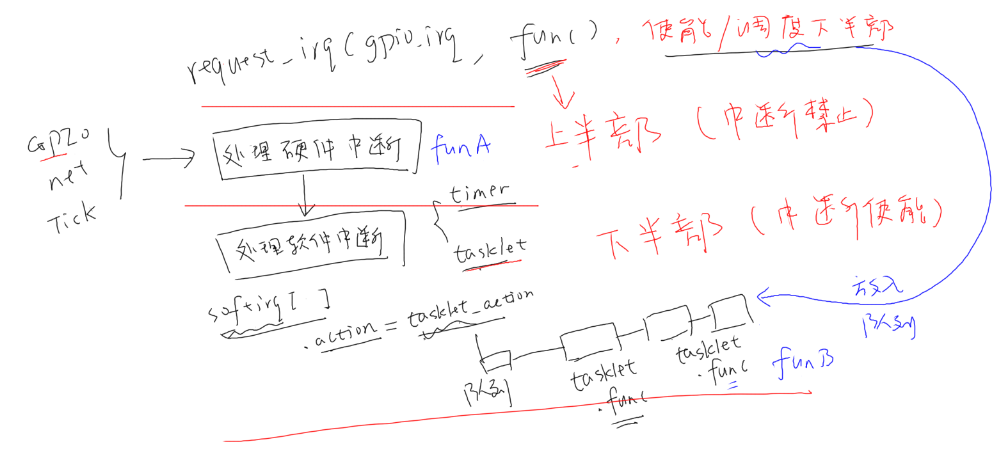 request_irq(gpio_irq, func(), 使能/调度下半部
上半部（中断禁止）
GPIO
net
Tick
处理硬件中断
funA
处理软件中断
timer
tasklet
下半部（中断使能）
softirq[ ]
.action = tasklet_action
队列
tasklet
.func
tasklet
.func
funB
放入
队列